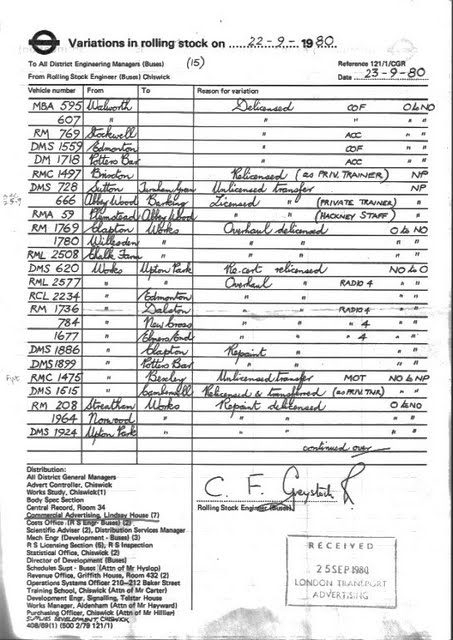 Variations in rolling stock on 22-9-1980
To All District Engineering Managers (Buses) (15) Reference 121/1/CGR
From Rolling Stock Engineer (Buses) Chiswick Date 23-9-80
Vehicle number From To Reason for variation
MBA 595 Walworth Delicensed COF O to NO
607 " " " " "
RM 769 Stockwell " ACC " "
DMS 1559 Edmonton " COF " "
DM 1718 Potters Bar " ACC " "
RMC 1497 Brixton Relicensed (as PRIV. TRAINER) NP
DMS 728 Sutton Turnham Green Unlicensed transfer NP
666 Abbey Wood Barking Licensed " (PRIVATE TRAINER) "
RMA 59 Plumstead Abbey Wood " " (HACKNEY STAFF) "
RM 1769 Clapton Works Overhaul delicensed O to NO
1780 Willesden " " " " "
RML 2508 Chalk Farm " " " " "
DMS 620 Works Upton Park Re-cert relicensed NO to O
RML 2577 " " Overhaul " RADIO 4 " "
RCL 2234 " Edmonton " " " "
RM 1736 " Dalston " " RADIO 4 " "
784 " New Cross " " " 4 " "
1677 " Elmers End " " " 4 " "
DMS 1886 " Clapton Repaint " " "
DMS 1899 " Potters Bar " " " "
RMC 1475 " Bexley Unlicensed transfer MOT NO to NP
DMS 1515 " Camberwell Relicensed & transferred (as PRIV TNR) " "
RM 208 Streatham Works Repaint delicensed O to NO
1964 Norwood " " " " "
DMS 1924 Upton Park " " " " "
continued over
Distribution:
All District General Managers
Advert Controller, Chiswick
Works Study, Chiswick(1)
Body Spec Section
Central Record, Room 34
Commercial Advertising, Lindsay House (7)
Costs Office (R S Engr Buses) (2)
Scientific Adviser (2), Distribution Services Manager
Mech Engr (Development - Buses) (3)
R S Licensing Section (5), R S Inspection
Statistical Office, Chiswick (2)
Director of Development (Buses)
Schedules Supt - Buses (Attn of Mr Hyslop)
Revenue Office, Griffith House, Room 432 (2)
Operations Systems Officer 210-212 Baker Street
Training School, Chiswick (Attn of Mr Carter)
Development Engr, Signalling, Telstar House
Works Manager, Aldenham (Attn of Mr Hayward)
Purchasing Officer, Chiswick (Attn of Mr Hillier)
SUPPLIES DEVELOPMENT, CHISWICK
408/69(1) (500 2/79 121/1)
C. F.
Rolling Stock Engineer (Buses)
RECEIVED
25 SEP 1980
LONDON TRANSPORT
ADVERTISING